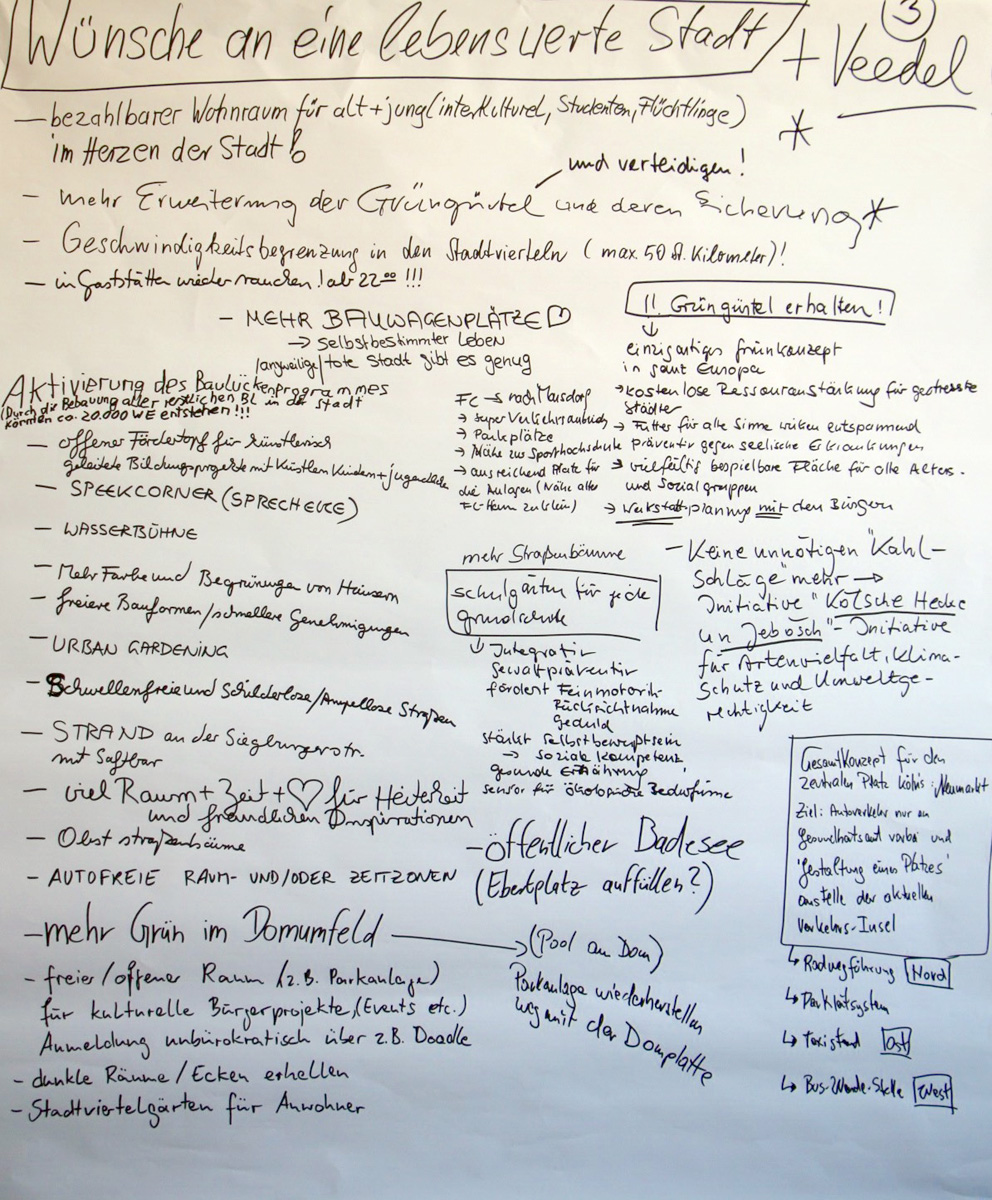 3
Wünsche an eine lebenswerte Stadt + Veedel
– bezahlbarer Wohnraum für alt + jung (interkulturel, Studenten, Flüchtlinge)
im Herzen der Stadt!
*
und verteidigen!
– mehr Erweiterung der Grüngürtel und deren Sicherung *
– Geschwindigkeitsbegrenzung in den Stadtvierteln (max. 50 St. Kilometer)!
– in Gaststätten wieder rauchen! ab 22.00 !!!
– MEHR BAUWAGENPLÄTZE ♡
→ Selbstbestimmter Leben
langweilige/tote Stadt gibt es genug
Aktivierung des Baulückenprogrammes
(Durch die Bebauung aller restlichen BL in der Stadt
könnten ca. 20.000 WE entstehen!!!
– offener Fördertopf für künstlerisch
geleitete Bildungsprojekte mit Künstlern Kindern + jugendliche
– SPEEKCORNER (SPRECHECKE)
– WASSERBÜHNE
– Mehr Farbe und Begrünungen von Häusern
– freiere Bauformen/schnellere Genehmigungen
– URBAN GARDENING
– Schwellenfreie und Schilderlose/Ampellose Straßen
– STRAND an der Siegburgerstr.
mit Saftbar
– viel Raum + Zeit + ♡ für Heiterkeit
und freundlichen Inspirationen
– Obst straßenbäume
– AUTOFREIE RAUM- UND/ODER ZEITZONEN
– mehr Grün im Domumfeld → (Pool am Dom)
Parkanlage wiederherstellen
weg mit der Domplatte
– freier/offener Raum (z.B. Parkanlage)
für kulturelle Bürgerprojekte (Events etc.)
Anmeldung unbürokratisch über z.B. Doodle
– dunkle Räume/Ecken erhellen
– Stadtviertelgärten für Anwohner
FC → nach Marsdorf
→ super Verkehrsanbind
→ Parkplätze
→ Nähe zur Sporthochschule
→ ausreichend Platz für
die Anlagen (Nähe altes
FC-Heim
mehr Straßenbäume
schulgärten für jede
grundschule
↓ Integrativ
gewaltpräventiv
fördert Feinmotorik
Rücksichtnahme
Geduld
stärkt selbstbewußtsein
→ soziale Kompetenz
gesunde Ernährung
sensor für ökologische Bedürfnisse
– öffentlicher Badesee
(Ebertplatz auffüllen?)
!! Grüngürtel erhalten!
↓
einzigartiges Grünkonzept
in samt Europa
→ kostenlose Ressourcenstärkung für gestresste
Städter
→ Futter für alle Sinne wirken entspannend
präventiv gegen seelische Erkrankungen
→ vielfältig bespielbare Fläche für alle Alters-
und Sozialgruppen
→ Werkstattplanung mit den Bürgern
– Keine unnötigen "Kahl-
Schläge" mehr →
Initiative "Kölsche Hecke
un Jebösch" – Initiative
für Artenvielfalt, Klima-
Schutz und Umweltge-
rechtigkeit
Gesamtkonzept für den
zentralen Platz Kölns: Neumarkt
Ziel: Autoverkehr nur am
Gesundheitsamt vorbei und
'Gestaltung eines Platzes'
anstelle der aktuellen
Verkehrs-Insel
↳ Radwegführung Nord
↳ Parkleitsystem
↳ Taxistand Ost
↳ Bus-Wende-Stelle West